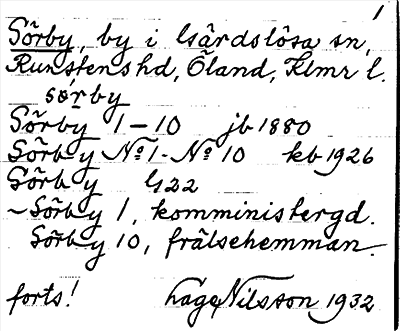 1
Sörby, by i Gärdslösa sn,
Runstens hd, Öland, Klmr l.
sörby
Sörby 1-10 jb 1880
Sörby No 1 - No 10 kb 1926
Sörby G22
~Sörby 1, komministergd.
Sörby 10, frälsehemman.
forts! Hage Nilsson 1932